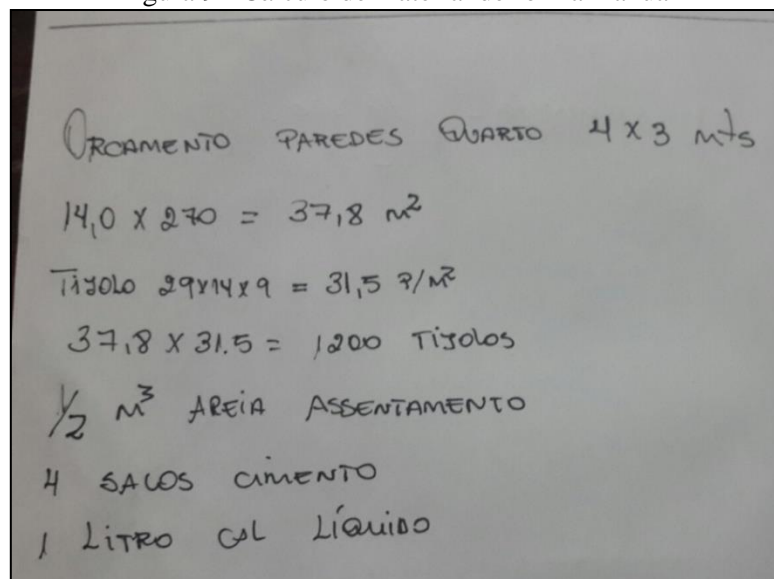 ORCAMENTO PAREDES QUARTO 4 X 3 mts
14,0 X 270 = 37,8 m²
TIJOLO 29x14x9 = 31,5 P/M²
37,8 X 31.5 = 1200 TiJOLOS
1/2 M³ AREiA ASSENTAMENTO
4 SACOS CIMENTO
1 LiTRO CAL LÍQUIDO